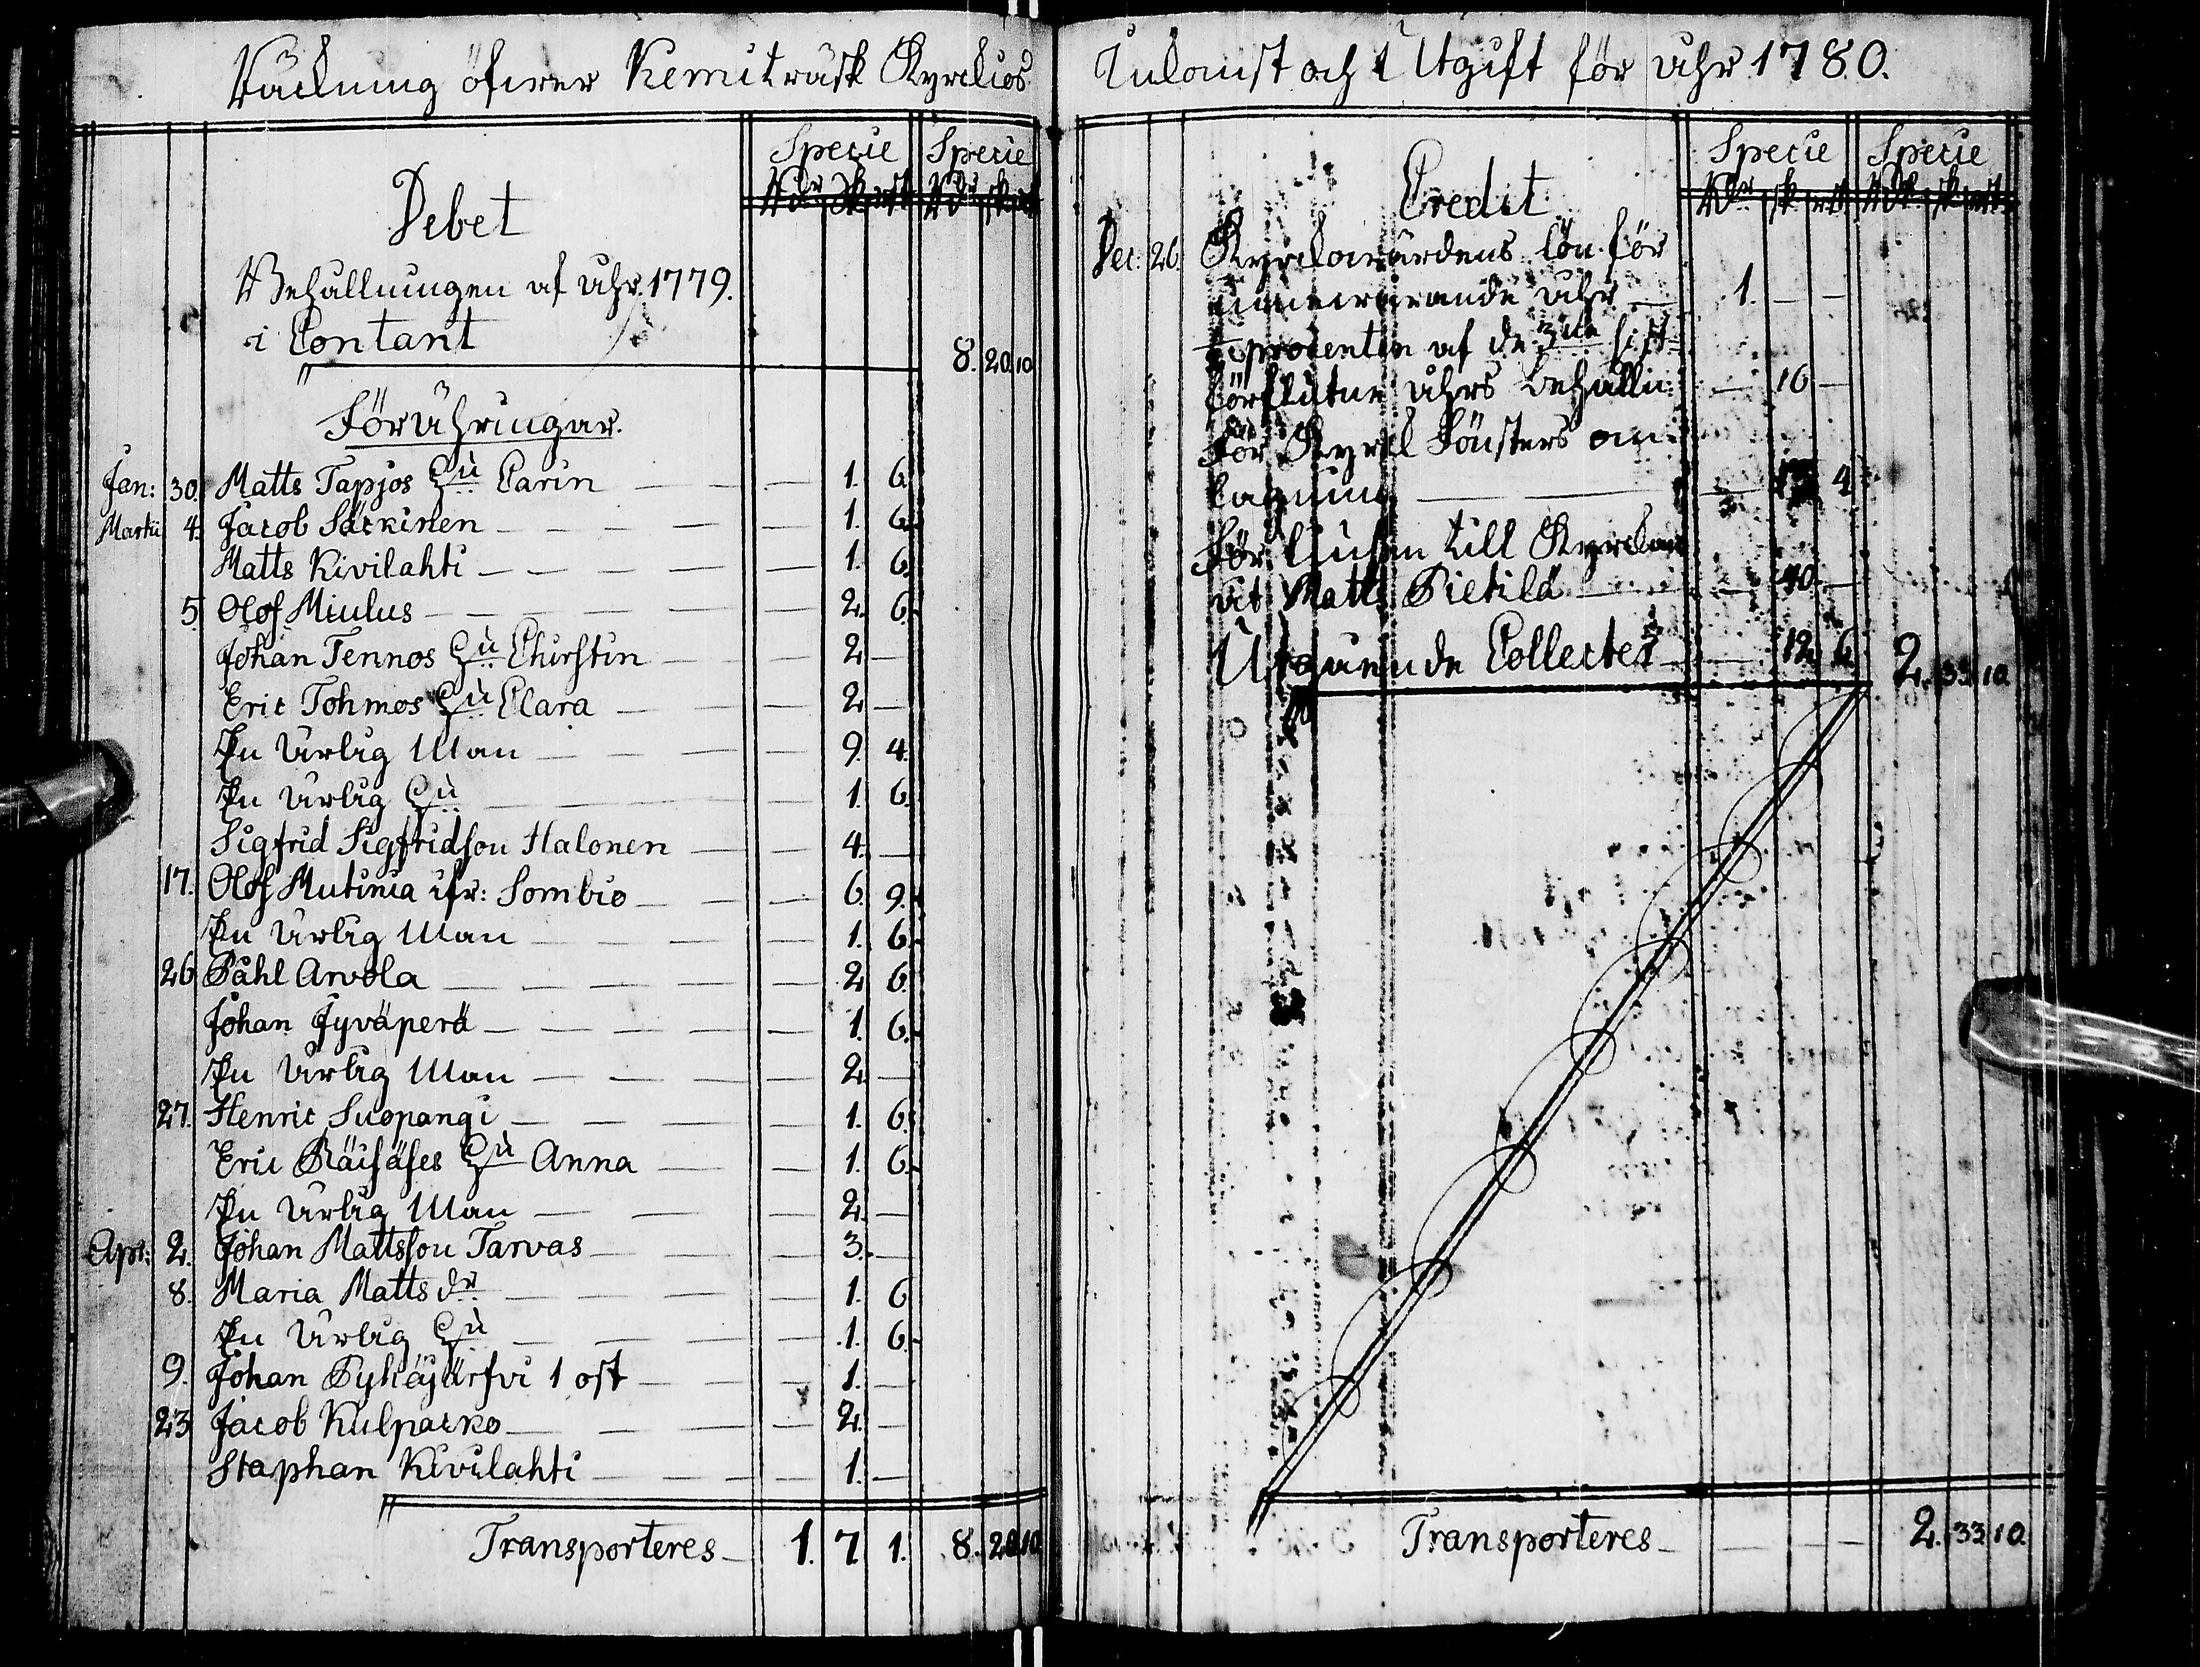 Räckning öfwer Kemiträsk Kyrckios
Debet
Specie Specie
Rdr Sk rst Rdr sk rst
Behållningen af åhr 1779.
i Contant 8. 20 10
Förähringar.
Jan: 30. Matts Tapjos Hu Carin — 1. 6.
Martii 4. Jacob Särkinen — 1. 6.
Matts Kivilahti — 1. 6.
5. Olof Miulus — 2. 6.
Johan Tennos Hu Chirstin — 2. —
Eric Tohmos Hu Clara — 2. —
En Ärlig Man — 9. 4.
En Ärlig Hu — 1. 6.
Sigfrid Sigfridson Halonen — 4. —
17. Olof Mutinia ifr: Sombio — 6. 9.
En Ärlig Man — 1. 6.
26 Påhl Arvola — 2. 6.
Johan Jyväperä — 1. 6.
En Ärlig Man — 2. —
27. Henric Suopangi — 1. 6.
Eric Räisäses Hu Anna — 1. 6.
En Ärlig Man — 2. —
Apr: 2. Johan Mattsson Tarvas — 3. —
8. Maria Matts dr — 1. 6
En Ärlig Hu — 1. 6.
9. Johan Pyhäjärfvi 1 ost — 1. —
23 Jacob Kulpacko — 2. —
Staphan Kivilahti — 1. —
Transporteres — 1. 7 1. 8. 20 10
Inkomst och Utgift för åhr 1780.
Credit
Specie Specie
Rdr sk rst Rdr sk rst
Dec: 26. Kyrckowärdens lön för
innewarande åhr — 1. — —
procenten af de sist
förflutne åhrs behålln: — 16 —
För Kyrck Fönsters om
lagning — 4
För liusen till Kyrckan
åt Matts Pietilä — 40. —
Utgående Collecter — 12. 6. 2. 33 10
Transporteres — — — 2. 33 10.